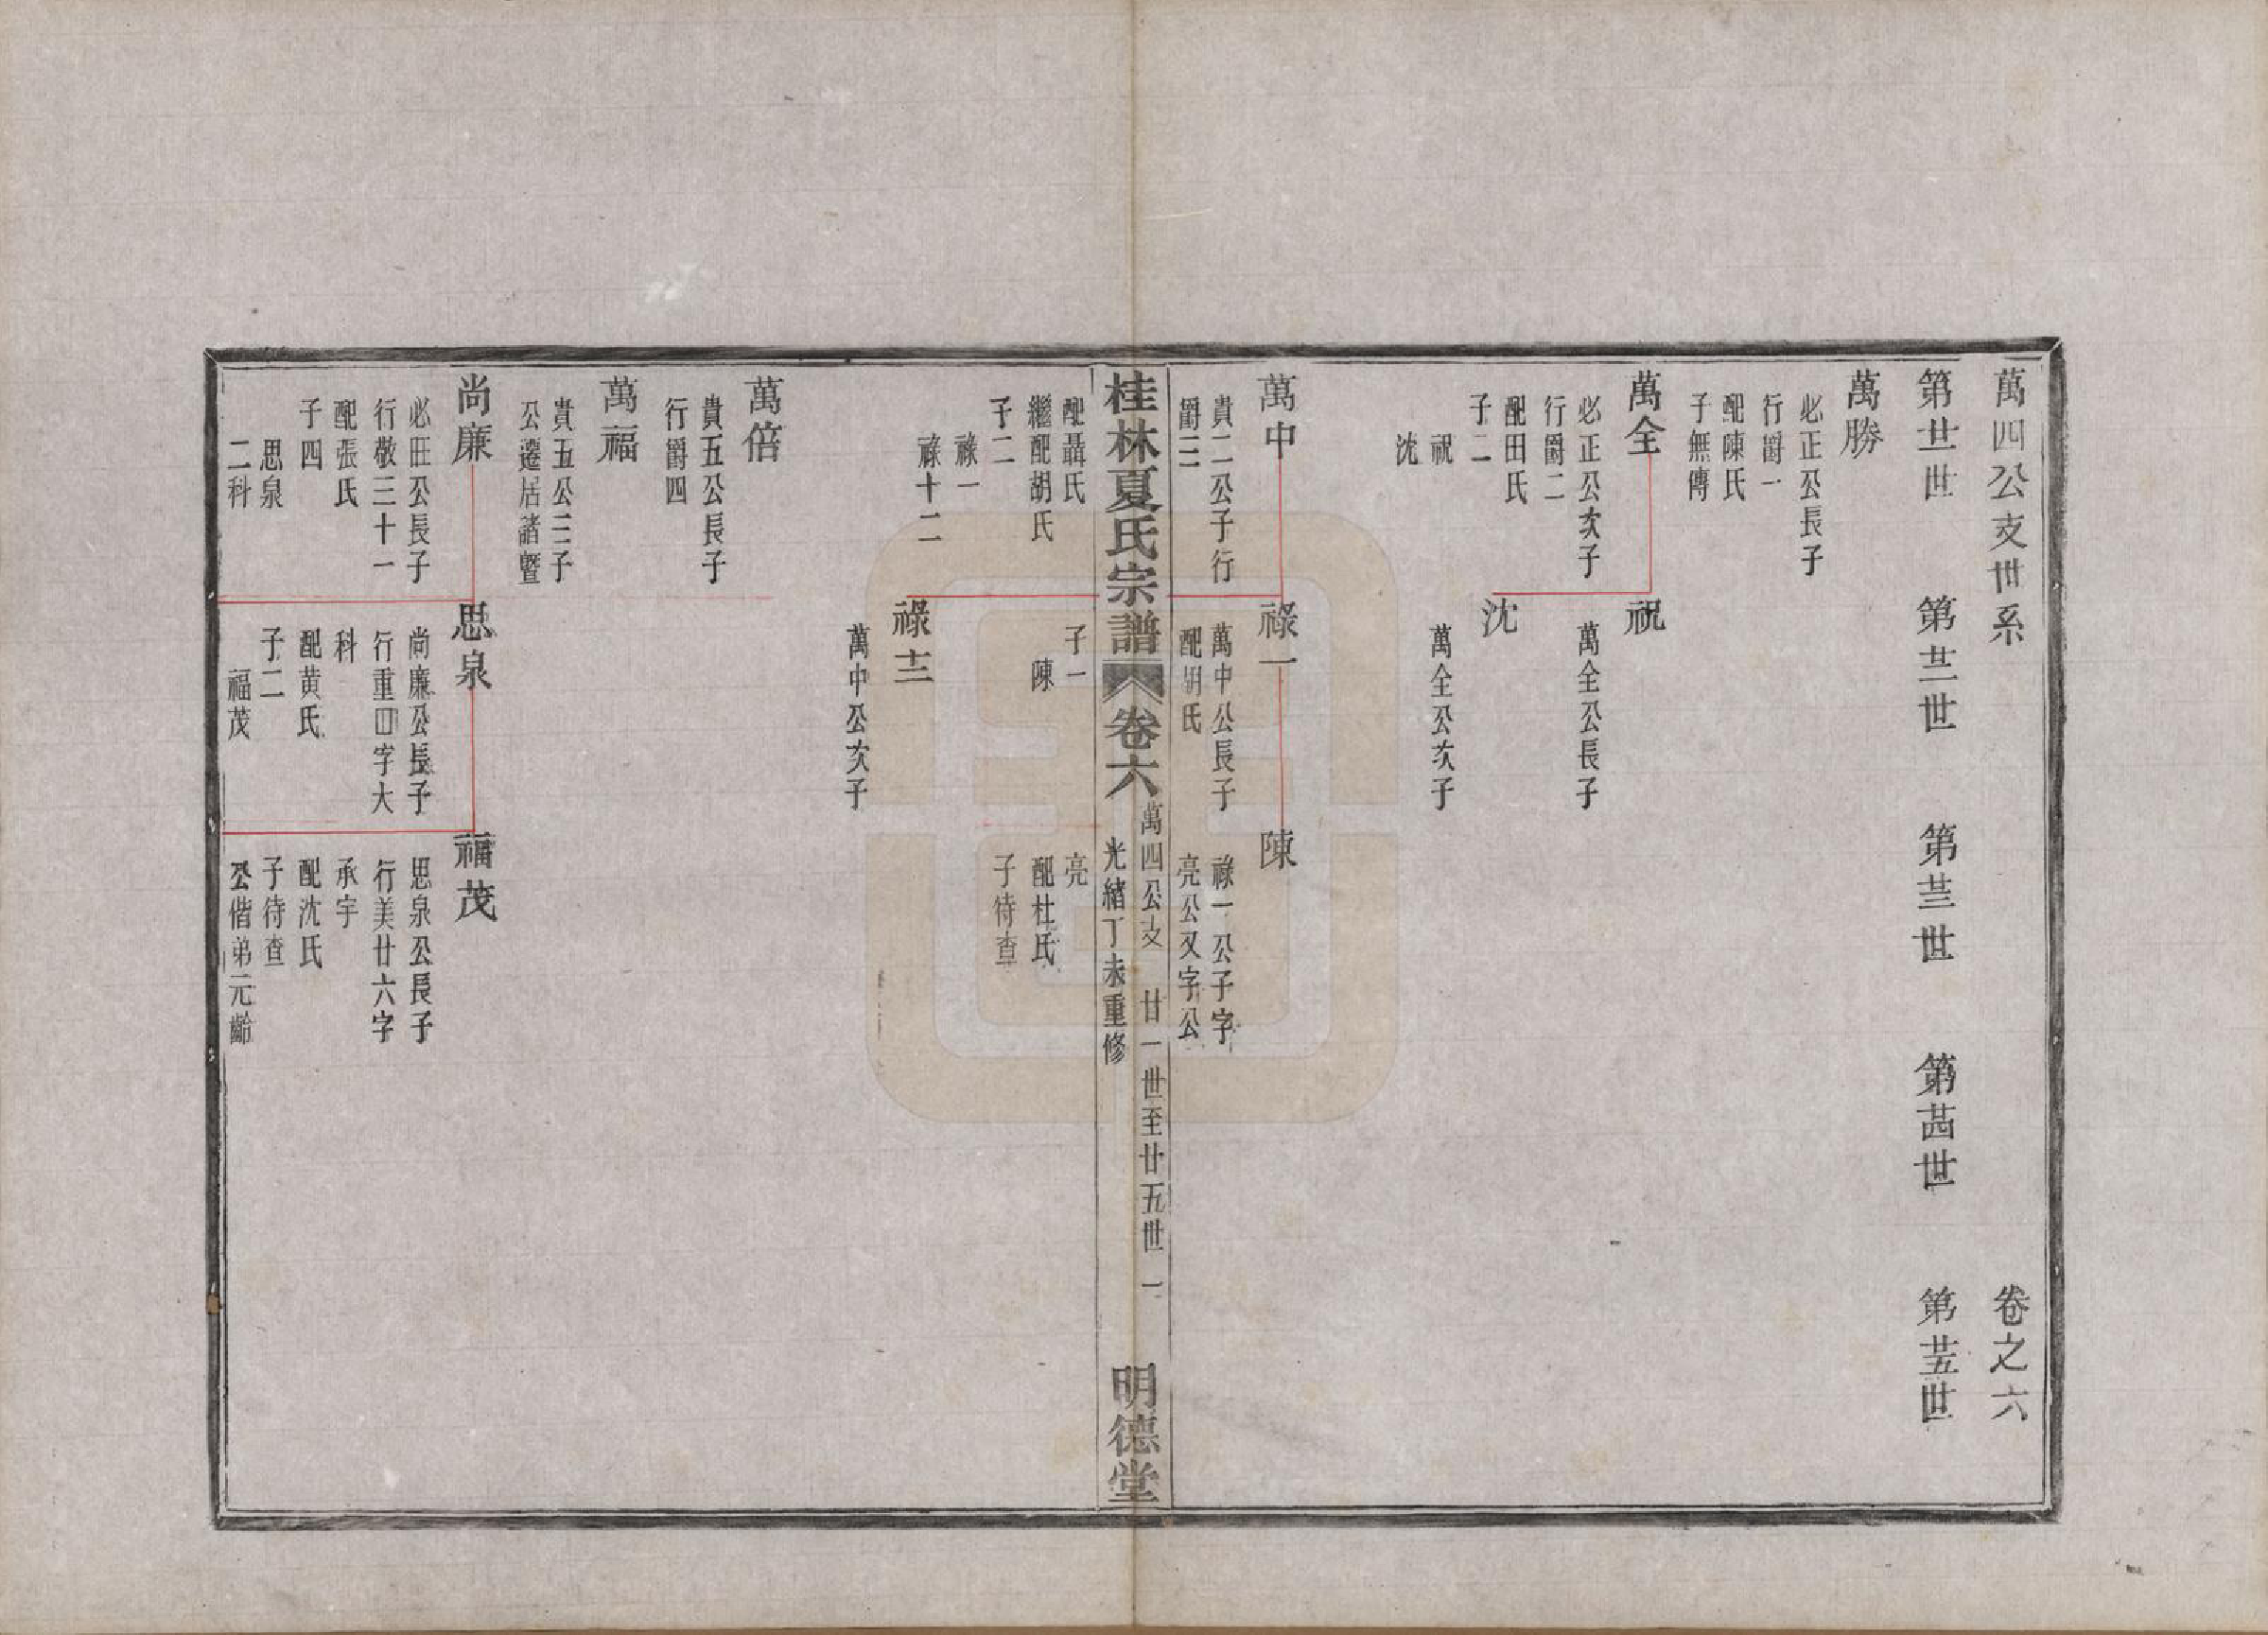 萬四公支世系
卷之六
第廿一世
第廿二世
第廿三世
第廿四世
第廿五世
萬勝
必正公長子
行爵一
配陳氏
子無傳
萬全
必正公次子
行爵二
配田氏
子二
祝
沈
祝
萬全公長子
沈
萬全公次子
萬中
貴二公子行
爵三
祿一
萬中公長子
配胡氏
陳
祿一公子字
亮公又字公
桂林夏氏宗譜
卷六
萬四公支 廿一世至廿五世 一
光緒丁未重修
明德堂
配聶氏
繼配胡氏
子二
祿一
祿十二
子一
陳
亮
配杜氏
子待查
祿十二
萬中公次子
萬倍
貴五公長子
行爵四
萬福
貴五公三子
公遷居諸暨
尚廉
必旺公長子
行敬三十一
配張氏
子四
思泉
二科
思泉
尚廉公長子
行重四字大
科
配黄氏
子二
福茂
福茂
思泉公長子
行美廿六字
承宇
配沈氏
子待查
公偕弟元齡